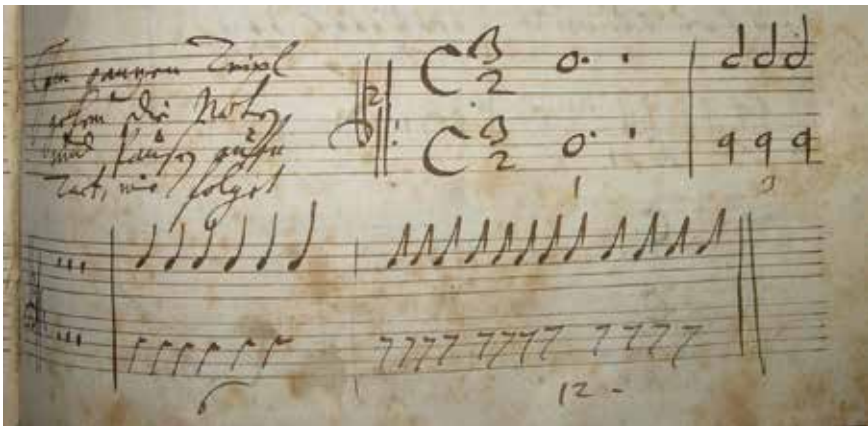 Im ganzen Tripl
gehen die Noten
und Pausen auff
Tact, wie folget
2
C 3/2
C 3/2
1 3
6 12